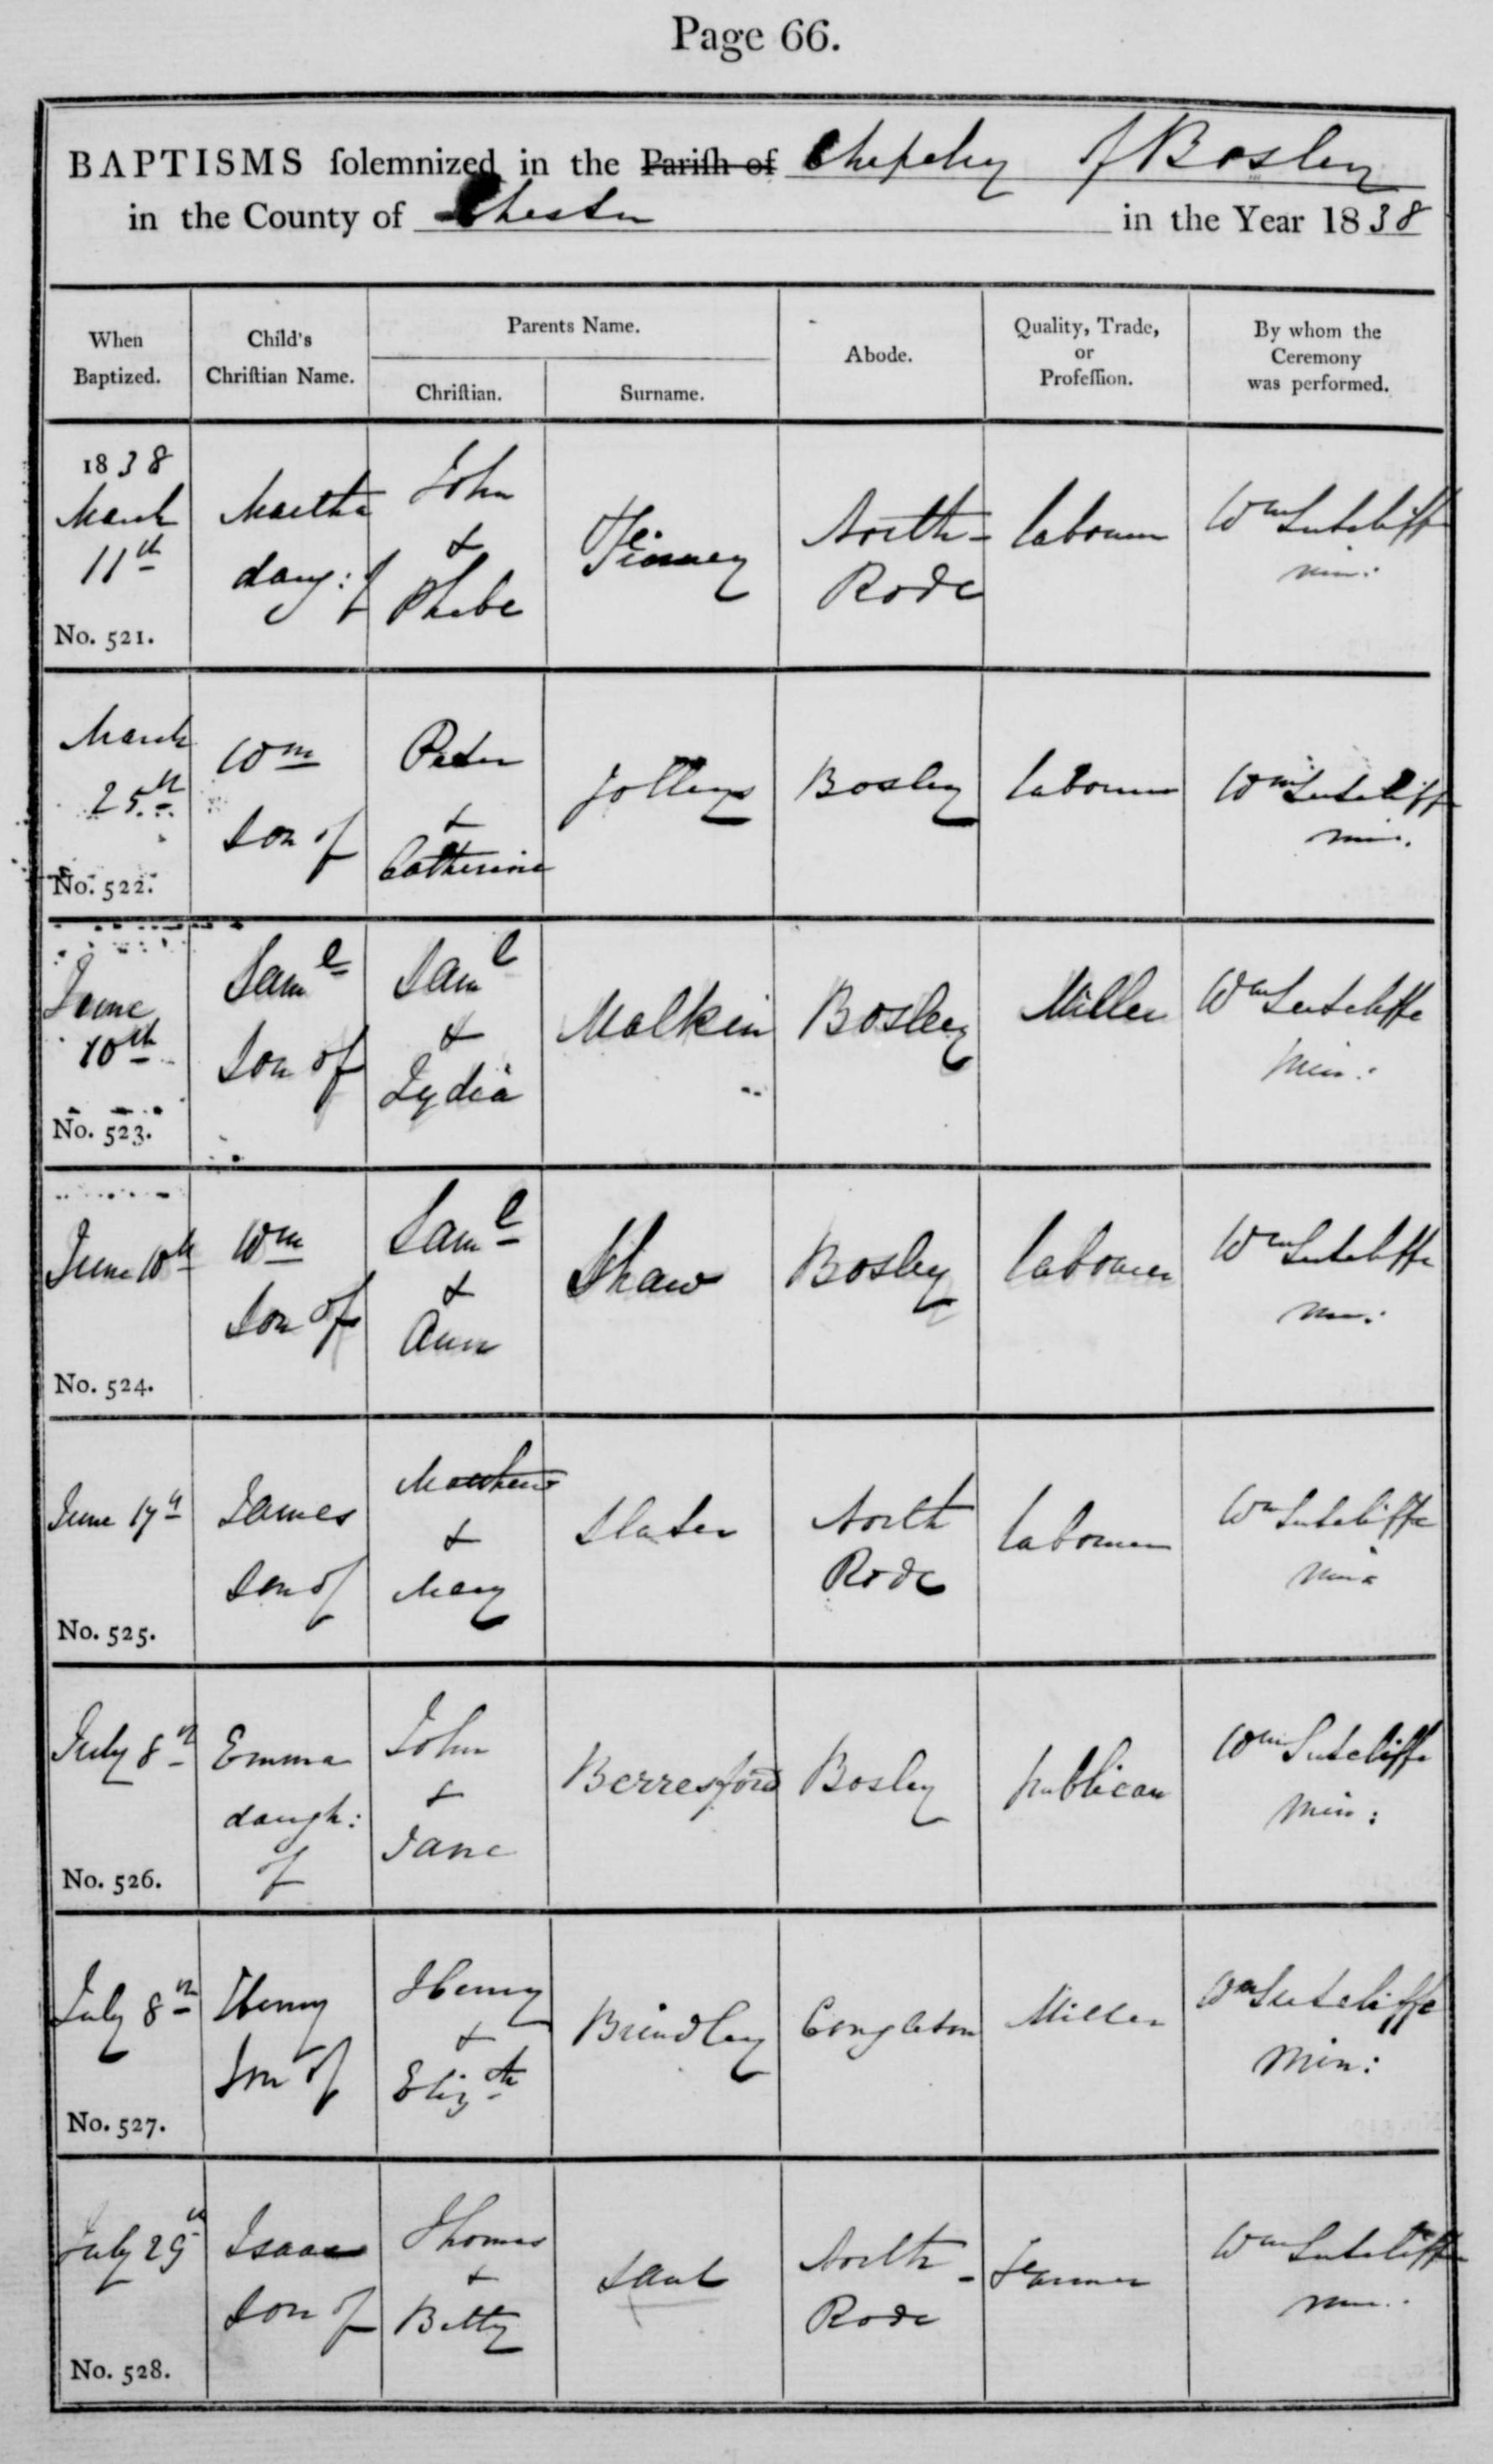 Page 66.
BAPTISMS ſolemnized in the Pariſh of Chapelry of Bosley
in the County of Chester in the Year 1838
When
Baptized.
Child's
Chriſtian Name.
Parents Name.
Chriſtian.
Surname.
Abode.
Quality, Trade,
or
Profeſſion.
By whom the
Ceremony
was performed.
1838
March
11th
No. 521.
Martha
daug: of
John
&
Phebe
Finney
North-
Rode
labourer
Wm Sutcliffe
min:
March
25th
No. 522.
Wm
Son of
Peter
&
Catherine
Jolley
Bosley
labourer
Wm Sutcliffe
min.
June
10th
No. 523.
Saml
Son of
Saml
&
Lydia
Malkin
Bosley
Miller
Wm Sutcliffe
Min:
June 10th
No. 524.
Wm
Son of
Saml
&
Ann
Shaw
Bosley
labourer
Wm Sutcliffe
min:
June 17th
No. 525.
James
Son of
Matthew
&
Mary
Slater
North
Rode
labourer
Wm Sutcliffe
min:
July 8th
No. 526.
Emma
daugh:
of
John
&
Jane
Berresford
Bosley
publican
Wm Sutcliffe
Min:
July 8th
No. 527.
Henry
Son of
Henry
&
Elizth
Brindley
Congleton
Miller
Wm Sutcliffe
Min:
July 29th
No. 528.
Isaac
Son of
Thomas
&
Betty
North-
Rode
Farmer
Wm Sutcliffe
min: